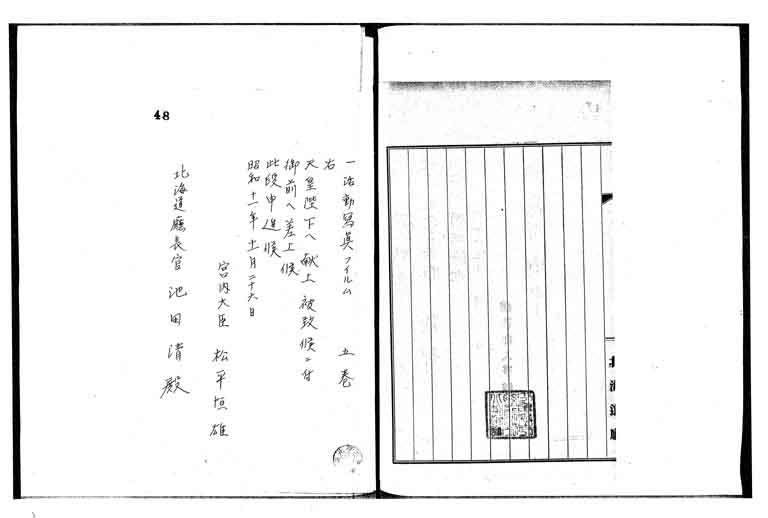 北海道廳
48
一 活動寫眞フイルム 五巻
右
天皇陛下へ献上被致候ニ付
御前へ差上候
此段申進候
昭和十一年十一月二十六日
宮内大臣 松平恒雄
北海道廳長官 池田清殿